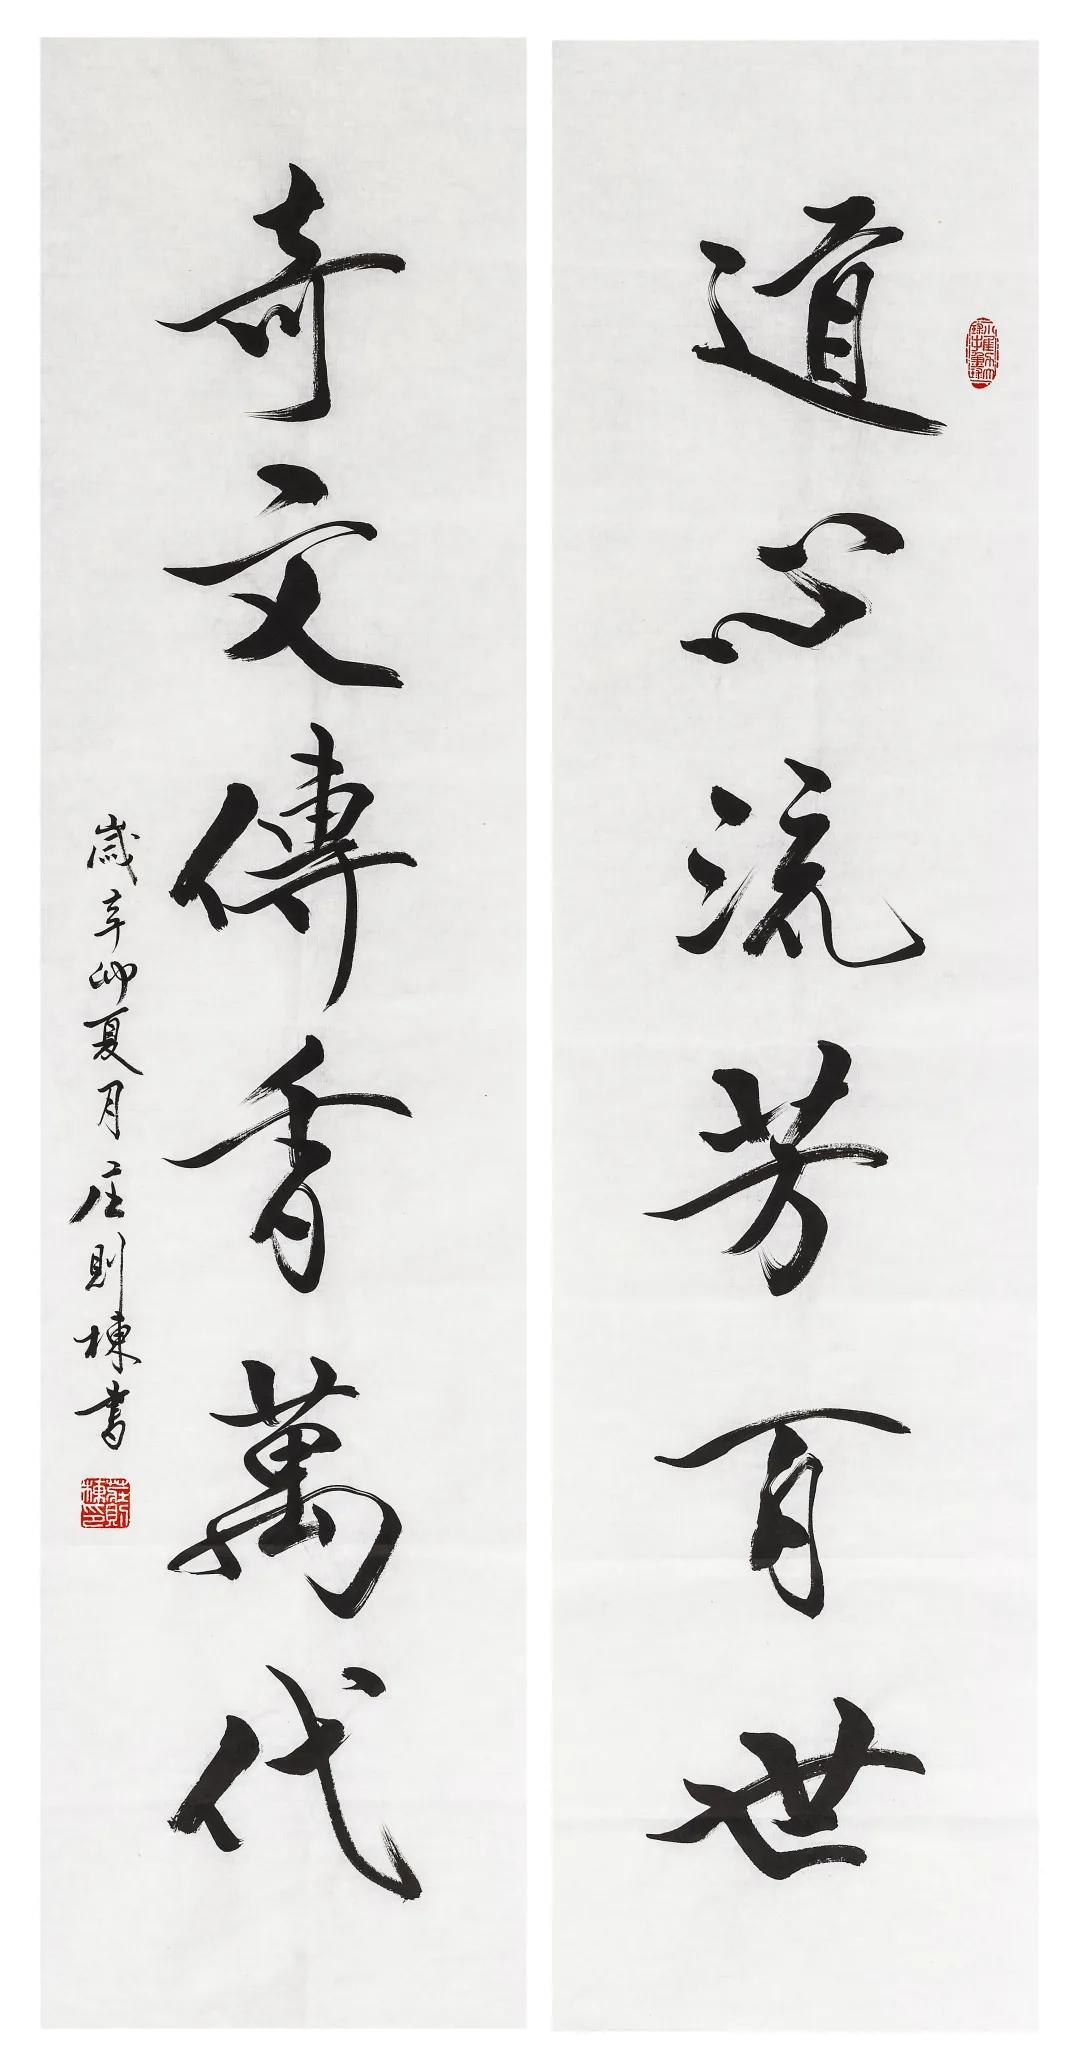 道心流芳百世
奇文傳香萬代
歲辛卯夏月庄則棟書
莊則棟印